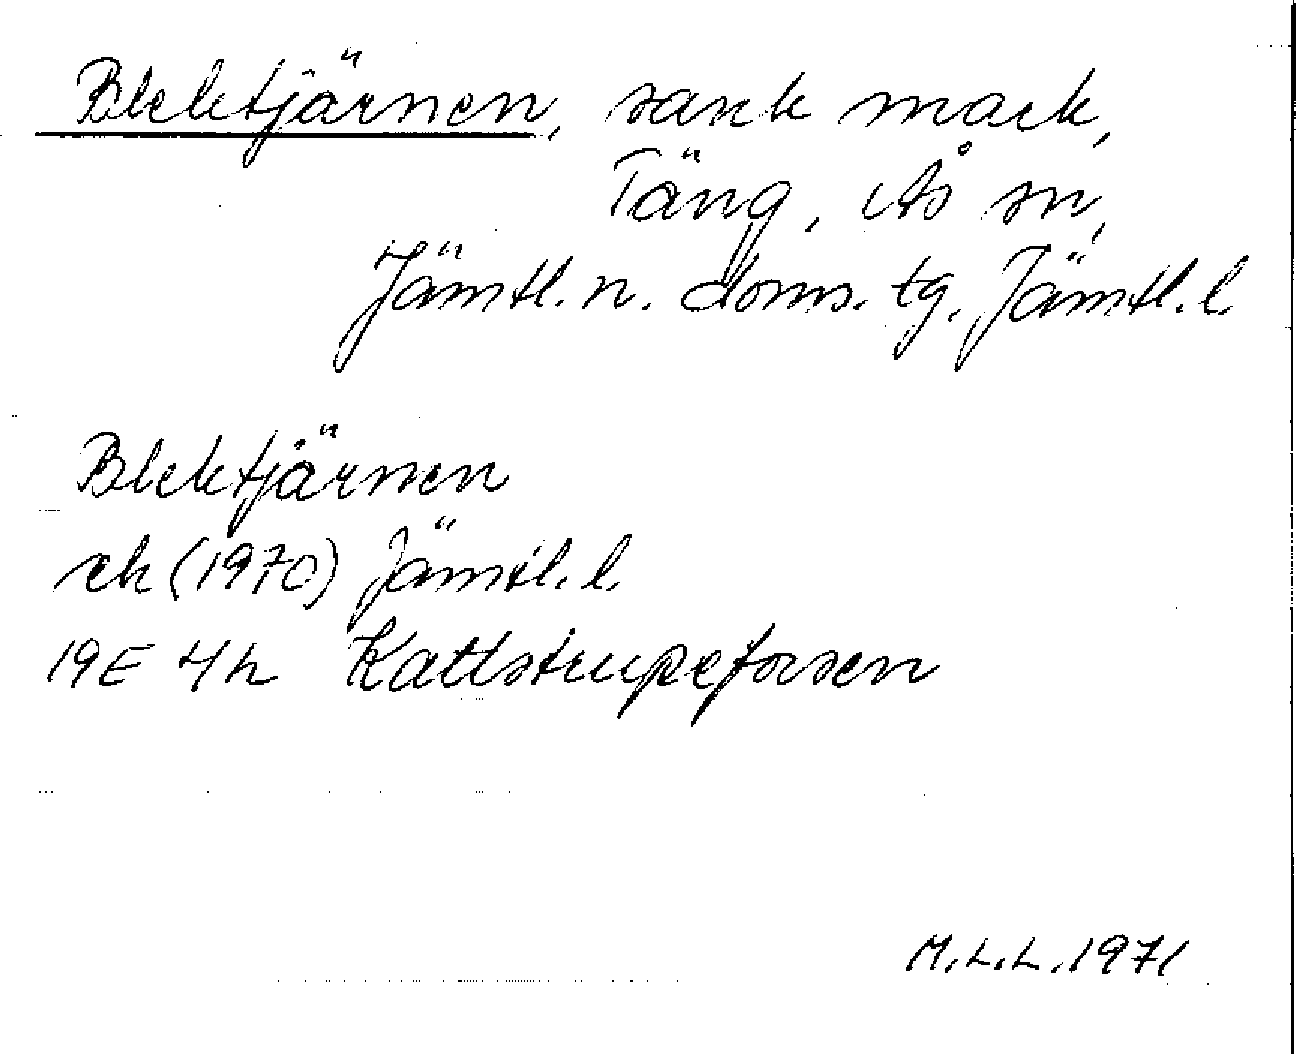 Blektjärnen, sank mark,
Täng, Ås sn,
Jämtl. n. doms. tg, Jämtl. l.
Blektjärnen
ek (1970) Jämtl. l.
19E 4h Kattstrupeforsen
M.L.L. 1971